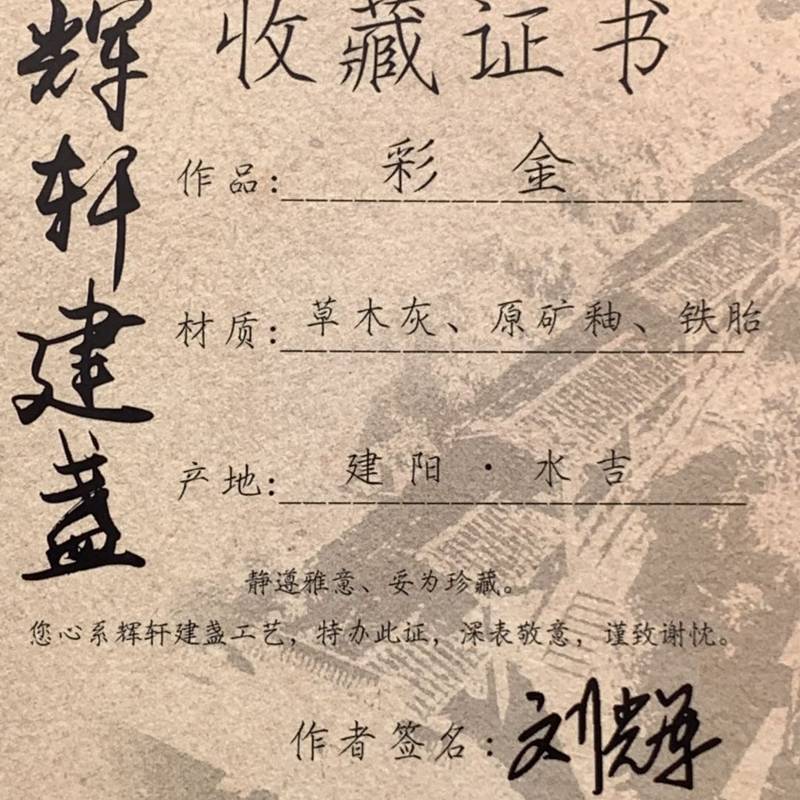 辉轩建盏
收藏证书
作品：彩 金
材质：草木灰、原矿釉、铁胎
产地：建阳·水吉
静遵雅意、妥为珍藏。
您心系辉轩建盏工艺，特办此证，深表敬意，谨致谢忱。
作者签名：刘辉